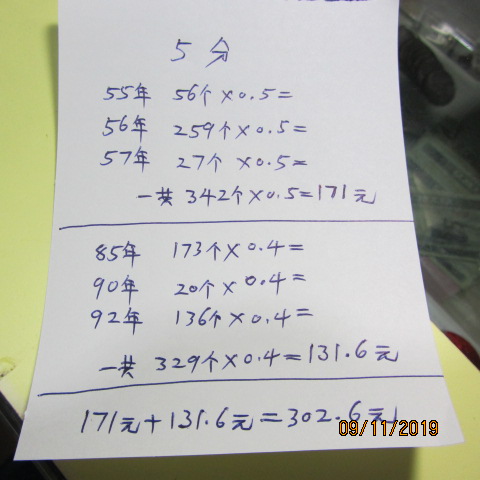 5分
55年 56个×0.5=
56年 259个×0.5=
57年 27个×0.5=
一共 342个×0.5=171元
85年 173个×0.4=
90年 20个×0.4=
92年 136个×0.4=
一共 329个×0.4=131.6元
171元+131.6元=302.6元
09/11/2019